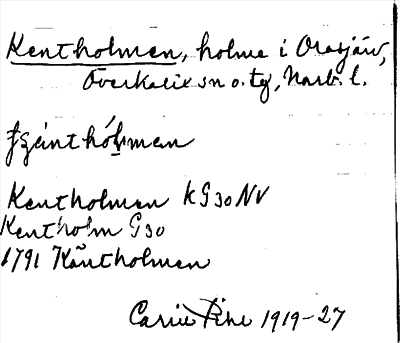 Kentholmen, holme i Orasjärv,
Överkalix sn o. tg, Norrb. l.
Kentholmen KG30NV
Kentholm G30
1791 Käntholmen
Carin Pihl 1919-27